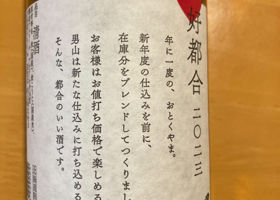 好都合 二〇二三
年に一度の、おとくやま。
新年度の仕込みを前に、
在庫分をブレンドしてつくりまし
お客様はお値打ち価格で楽しめる
男山は新たな仕込みに打ち込める
そんな、都合のいい酒です。
清酒